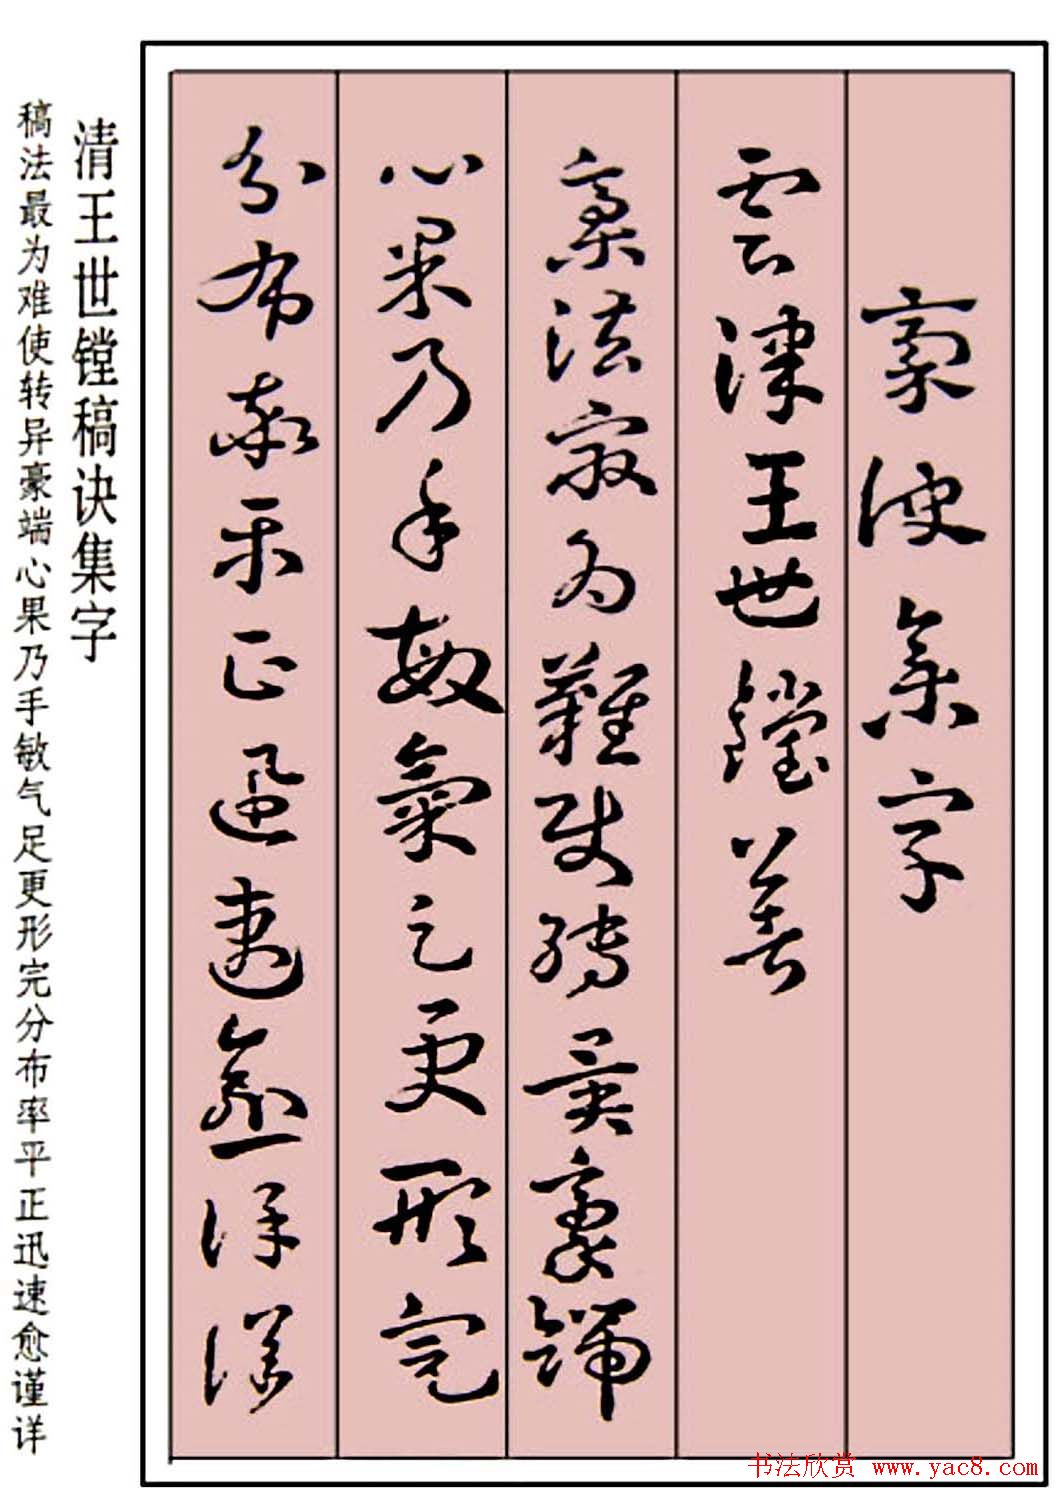 稾訣集字
雲津王世鏜著
稾法最為難使轉異豪端
心果乃手敏氣足更形完
分布率平正迅速愈謹詳
清王世镗稿诀集字
稿法最为难使转异豪端心果乃手敏气足更形完分布率平正迅速愈谨详
书法欣赏 www.yac8.com